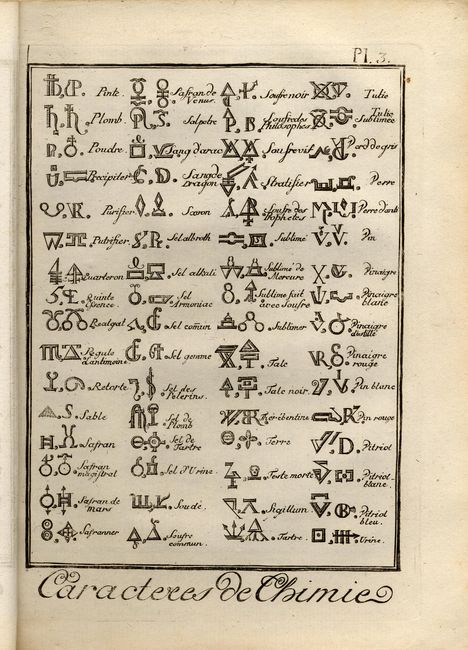 Pl. 3.
Pinte.
Plomb
Poudre
Recipiter
Purifier
Putrifier
Quarteron
Quinte
Essence.
Realgat
Regule
d'antimoine
Retorte
Sable
Safran
Safran
magistral
Safran de
mars
Safranner
Safran de
Venus.
Salpetre
Sang d'arac
Sang de
Dragon
Savon
Sel albroth
Sel alkali
Sel
Armoniac
Sel comun
Sel gemme
Sel des
Pelerins.
Sel de
Plomb
Sel de
Tartre
Sel d'Urine.
Soude.
Soufre
commun.
Soufre noir
Soufre des
Philosophes
Soufre vif
Stratifier
Soufre des
Prophetes
Sublimé
Sublimé de
Mercure
Sublimé fait
avec Soufre
Sublimer
Talc
Talc noir.
Terébentine
Terre
Teste morte
Sigillum
Tartre.
Tutie
Tutie
Sublimée
Verd de gris
Verre
Verre d'anti
Vin
Vinaigre
Vinaigre
blanc
Vinaigre
distillé
Vinaigre
rouge
Vin blanc
Vin rouge
Vitriol
Vitriol
blanc.
Vitriol
bleu.
Urine.
Caracteres de Chimie